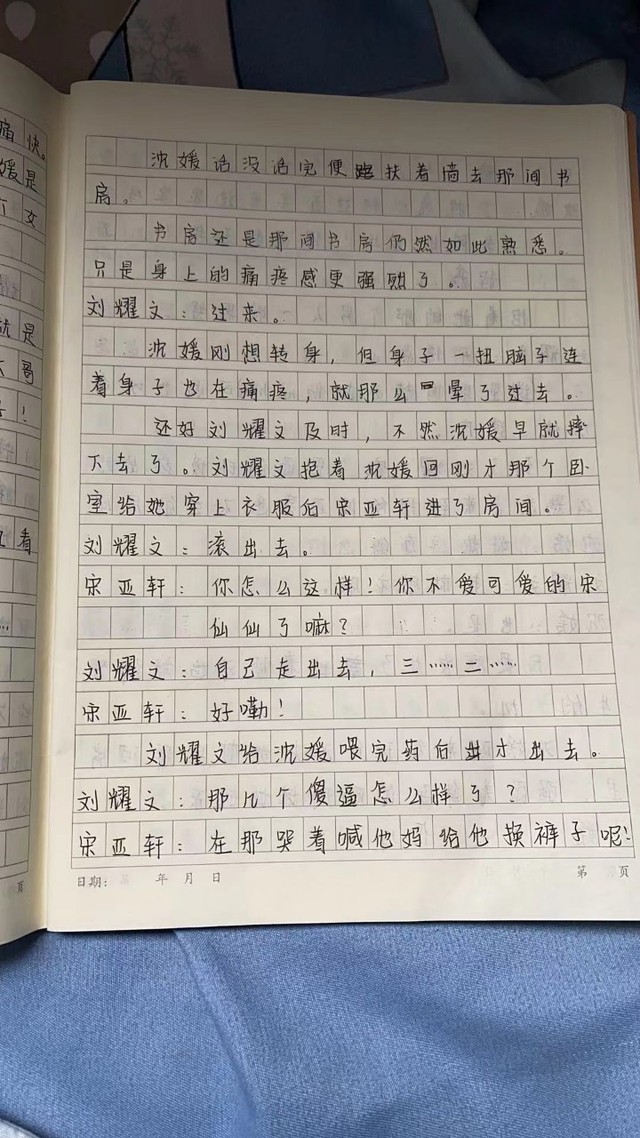 痛快。
媛是
女
就是
大哥
看
……
页
沈媛话没话完便扶着墙去那间书
房。
书房还是那间书房仍然如此熟悉。
只是身上的痛疼感更强烈了。
刘耀文：过来。
沈媛刚想转身，但身子一扭脑子连
着身子也在痛疼，就那么晕了过去。
还好刘耀文及时，不然沈媛早就摔
下去了。刘耀文抱着沈媛回刚才那个卧
室给她穿上衣服后宋亚轩进了房间。
刘耀文：滚出去。
宋亚轩：你怎么这样！你不爱可爱的宋
仙仙了嘛？
刘耀文：自己走出去，三……二……
宋亚轩：好嘞！
刘耀文给沈媛喂完药后才出去。
刘耀文：那几个傻逼怎么样了？
宋亚轩：在那哭着喊他妈给他换裤子呢！
日期： 年 月 日 第 页